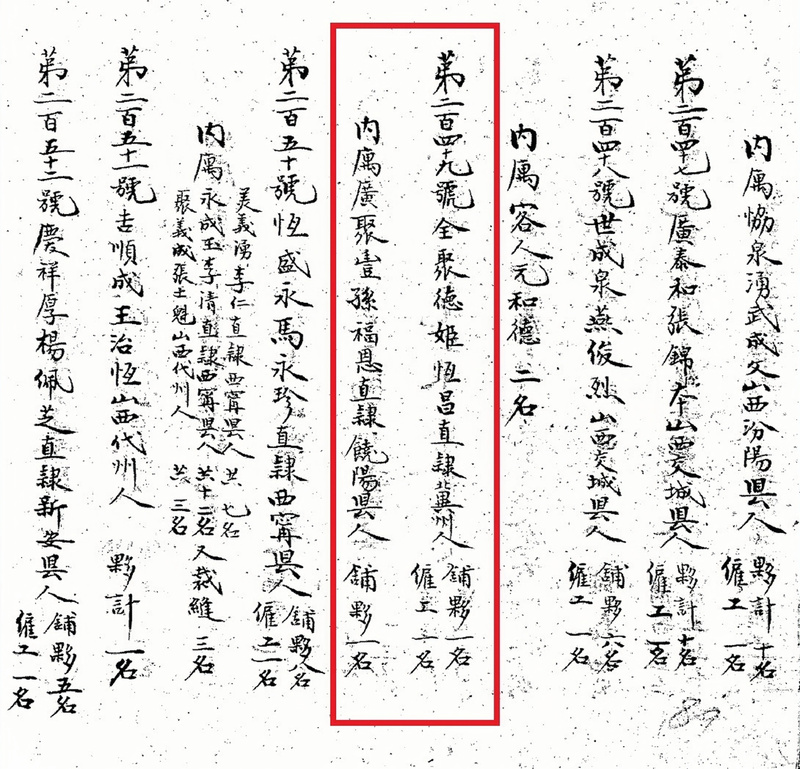 内厲恊泉湧武成文山西汾陽县人 夥計十名
僱工一名
第二百四十七號廣泰和張錦夲山西交城县人 夥計十名
僱工一名
第二百四十八號世成泉燕俊烈山西交城县人 舖夥六名
僱工一名
内厲客人元和德 二名
第二百四十九號全聚德姫恆昌直隷冀州人 舖夥一名
僱工一名
内厲廣聚豈孫福恩直隷饒陽县人 舖夥一名
第二百五十號恆盛永馬永珍直隷西甯县人 舖夥八名
僱工二名
美義湧李仁直隷西甯县人 共七名
内厲永成玉李清直隷西甯县人 共十二名又裁縫三名
聚義成張士魁山西代州人 共三名
第二百五十一號吉順成王治恆山西代州人 夥計一名
第二百五十二號慶祥厚楊佩芝直隷新安县人 舖夥五名
僱工一名
80